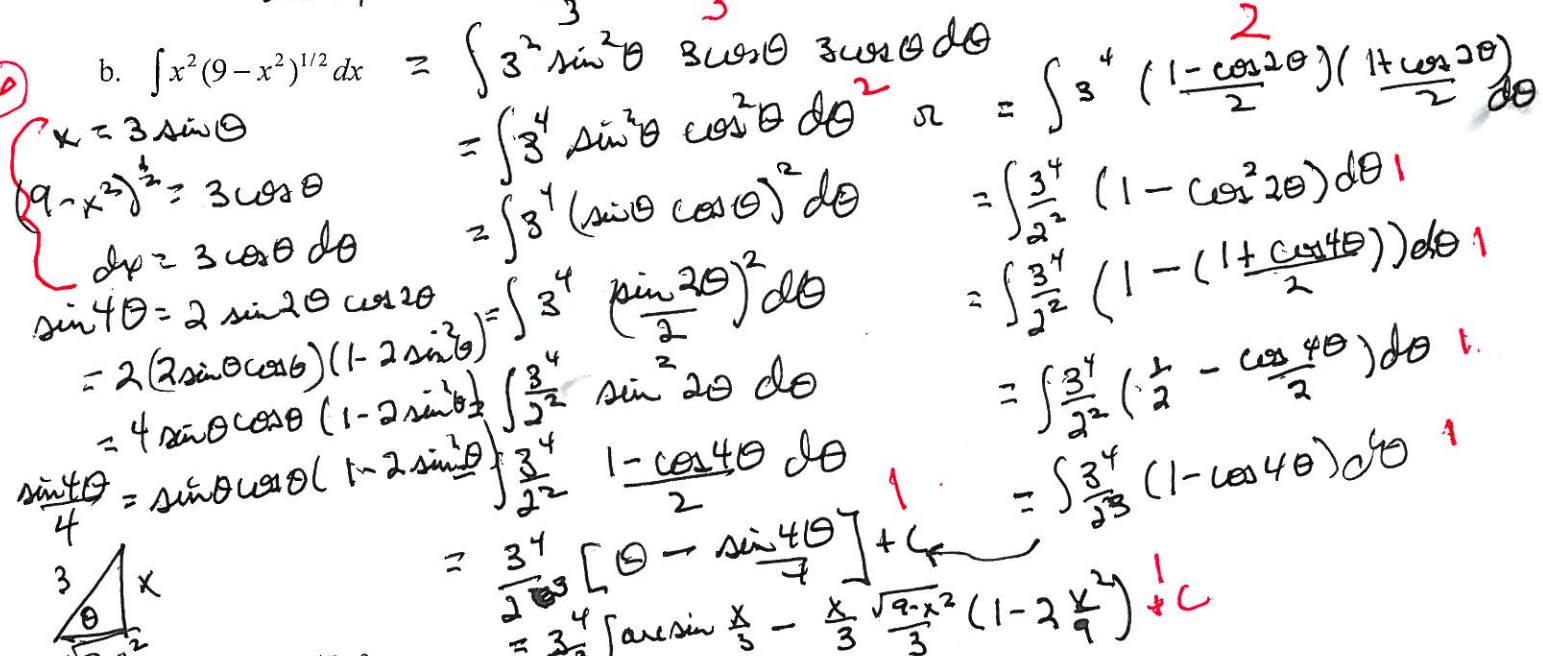 3 3 2
b. ∫ x²(9 – x²)^{1/2} dx = ∫ 3² sin²θ 3cosθ 3cosθ dθ
x = 3 sinθ
(9 - x²)^{1/2} = 3cosθ
dx = 3 cosθ dθ
sin4θ = 2 sin2θ cos2θ
= 2(2sinθcosθ)(1 - 2sin²θ)
= 4 sinθ cosθ (1 - 2sin²θ)
sin4θ/4 = sinθcosθ(1 - 2sin²θ)
3 x
θ
= ∫ 3⁴ sin²θ cos²θ dθ 2 or
= ∫ 3⁴ (sinθ cosθ)² dθ
= ∫ 3⁴ (sin 2θ/2)² dθ
= ∫ 3⁴/2² sin² 2θ dθ
∫ 3⁴/2² (1 - cos4θ)/2 dθ
= 3⁴/2³ [θ - sin4θ/4] + C 1
= 3⁴ [arcsin x/3 - x/3 √(9-x²)/3 (1 - 2 x²/9) + C 1
= ∫ 3⁴ ((1 - cos2θ)/2)((1 + cos2θ)/2) dθ
= ∫ 3⁴/2² (1 - cos² 2θ) dθ 1
= ∫ 3⁴/2² (1 - ((1 + cos4θ)/2)) dθ 1
= ∫ 3⁴/2² (1/2 - cos 4θ/2) dθ 1.
= ∫ 3⁴/2³ (1 - cos4θ) dθ 1